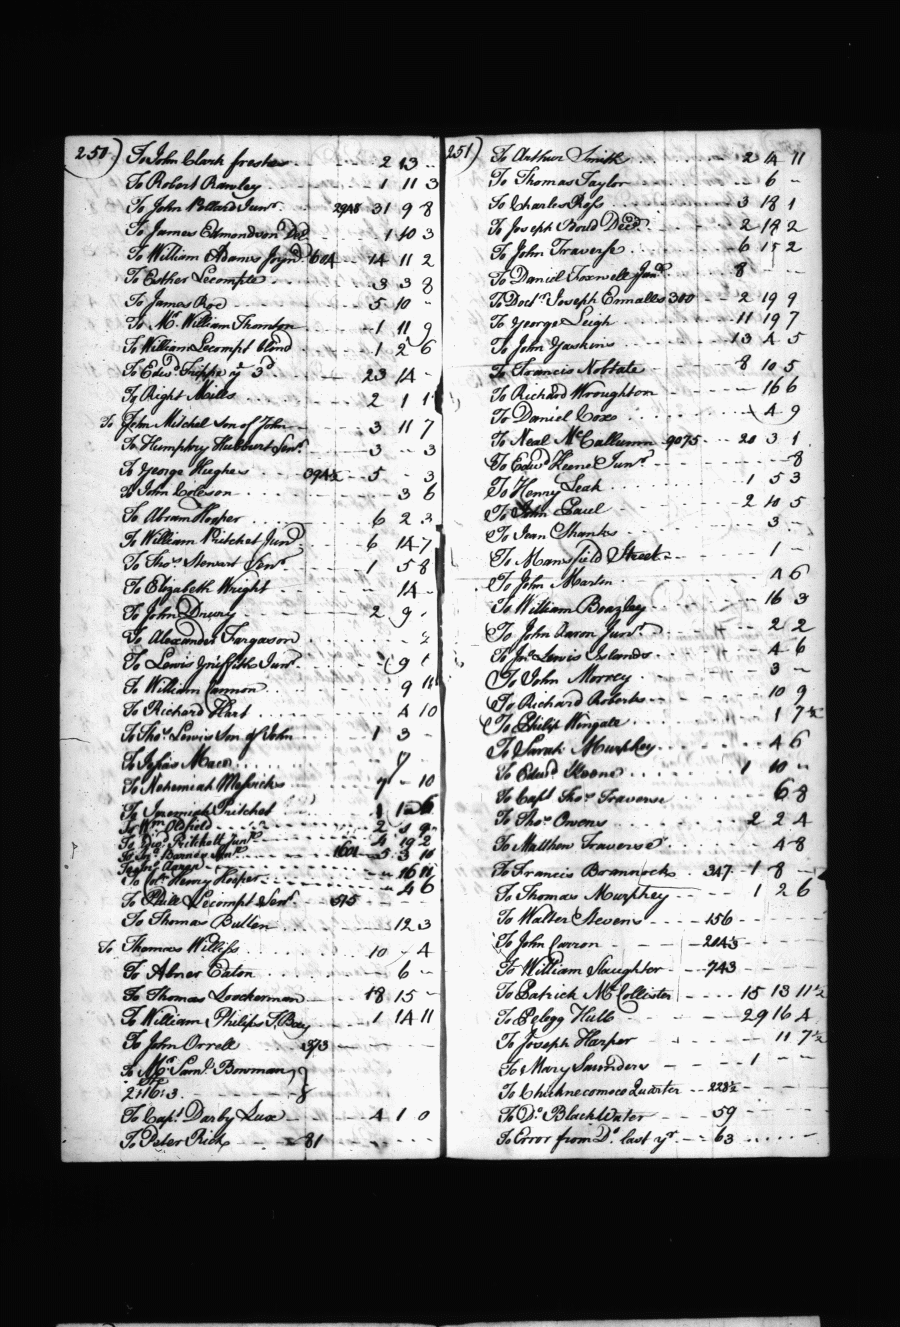 250) To John Clark freshes 2 13 ..
To Robert Rawley 1 11 3
To John Pollard Junr. 2948 31 9 8
To James Edmondson Decd 1 10 3
To William Adams Joynr. 604 14 11 2
To Esther Lecompte 3 3 8
To James Roe 5 10 -
To Mr. William Thornton 1 11 9
To William Lecompt blond 1 2 6
To Edwd Trippe ye 3d 23 14 -
To Right Mills 2 1 1
To John Mitchel son of John 3 11 7
To Humphry Hubbart Senr. 3 - 3
To George Hughes 394½ 5 3
To John Coleson 3 6
To Abram Hooper 6 2 3
To William Pritchet Junr. 6 14 7
To Thos. Stewart Senr. 1 5 8
To Elizabeth Wright 14 -
To John Drury 2 9
To Alexander Fargason
To Lewis Griffith Junr. 9
To William Cannon 9 11
To Richard Hart 4 10
To Thos. Lewis Son of John 1 3 -
To Mace 7
To Nehemiah Messicks 7 - 10
To Jeremiah Pritchet 1 6
To Wm. Oldfield 2 9
To Edwd. Pritchett Junr. 4 19 2
To Jno. Barnes Senr. 1601 5 3 10
To Aaron 16 11
To Colo. Henry Hooper 4 6
To Phill Lecompt Senr. 375
To Thomas Bullen 12 3
To Thomas Williss 10 - 4
To Abner Eaton 6 -
To Thomas Loockerman 18 15 -
To William Philips T. Bay 1 14 11
To John Orrell 373
To Mr. Saml. Bowman
2:16:3
To Capt. Darby Lux 4 1 0
To Peter Rich 81
251) To Arthur Smith 2 14 11
To Thomas Taylor 6 -
To Charles Ross 3 18 1
To Joseph Bould Decd. 2 12 2
To John Traverse 6 15 2
To Daniel Foxwell Junr. 8 - -
To Doctr. Joseph Ennalls 300 2 19 9
To George Leigh 11 19 7
To John Gaskins 13 4 5
To Francis Noblate 8 10 5
To Richard Wroughton 16 6
To Daniel Cox 4 9
To Neal McCallumn 9075 20 3 1
To Edwd Keene Junr. 8
To Henry Leak 1 5 3
To John Paul 2 10 5
To Jean Shanks 3 -
To Mansfield Street 1 -
To John Martin 4 6
To William Beazley 16 3
To John Aaron Junr. 2 2
To Jno. Lewis Islands 4 6
To John Morrey 3 -
To Richard Roberts 10 9
To Philip Wingate 1 7½
To Sarah Murphey 4 6
To Edwd Keene 1 10 -
To Capt Thos. Traverse 6 8
To Thos. Owens 2 2 4
To Matthew Traverse 4 8
To Francis Brannock 347 1 8 -
To Thomas Murphey 1 2 6
To Walter Stevens 156
To John Carron 204½
To William Slaughter 743
To Patrick McCollister 15 13 11½
To Pelegg Hull 29 16 4
To Joseph Harper 11 7½
To Mary Saunders 1
To Chicknecomoco Quarter 228½
To Do. Black Water 59
To Error from Do. last yr. 63